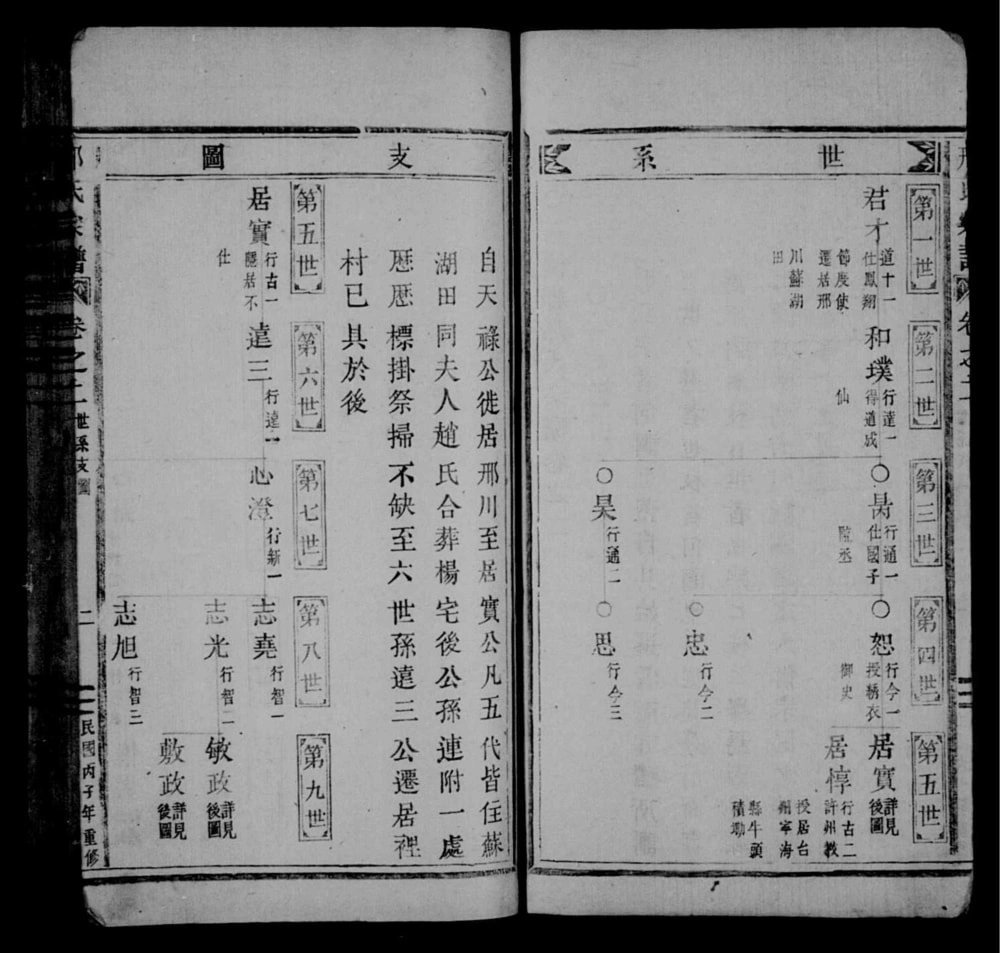 世系
第一世
君才
道十一
仕鳳翔
節度使
遷居邢
川蘇湖
田
第二世
和璞
行達一
得道成
仙
第三世
○昺
行通一
仕國子
監丞
○昊
行通二
第四世
○恕
行今一
授綉衣
御史
○忠
行今二
○思
行今三
第五世
居實
詳見
後圖
居惇
行古二
許州教
授居台
州寧海
縣牛頭
積
支圖
自天祿公徙居邢川至居實公凡五代皆住蘇
湖田同夫人趙氏合葬楊宅後公孫連附一處
歷歷標掛祭掃不缺至六世孫達三公遷居裡
村已具於後
第五世
居實
行古一
隱居不
仕
第六世
達三
行達一
第七世
心澄
行新一
第八世
志堯
行智一
志光
行智二
志旭
行智三
第九世
敏政
詳見
後圖
敷政
詳見
後圖
氏宗譜
卷之二
世系支圖
二
民國丙子年重修